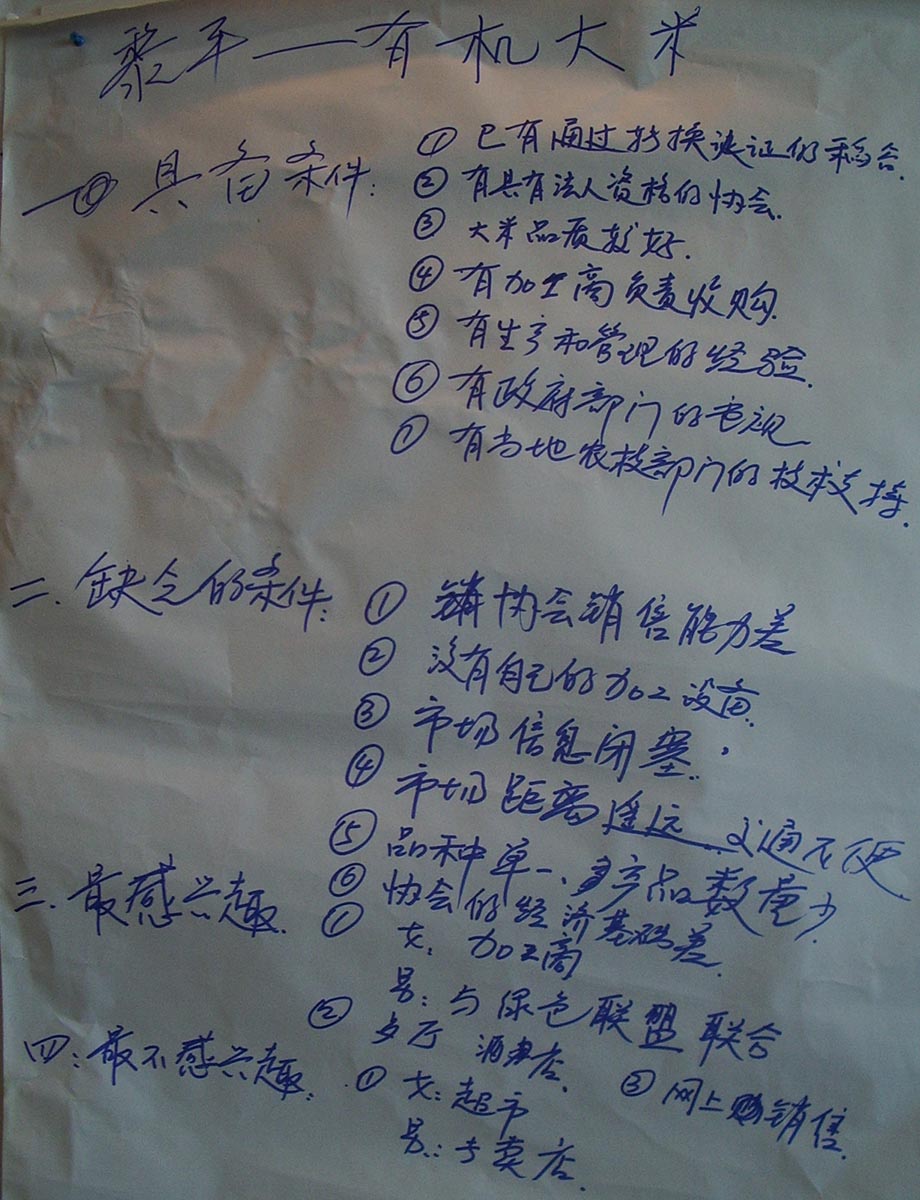 黎平——有机大米
一 具备条件: ① 已有通过转换认证的稻谷.
② 有具有法人资格的协会.
③ 大米品质较好.
④ 有加工商负责收购.
⑤ 有生产和管理的经验.
⑥ 有政府部门的重视
⑦ 有当地农技部门的技术支持.
二. 缺乏的条件: ① 协会销售能力差
② 没有自己的加工设备.
③ 市场信息闭塞.
④ 市场距离遥远 交通不便.
⑤ 品种单一、产品数量少.
⑥ 协会的经济基础差.
三. 最感兴趣. ① 女: 加工商
男: 与绿色联盟联合
② 乡厅 消费店. ③ 网上销售.
四: 最不感兴趣: ① 女: 超市
男: 专卖店.